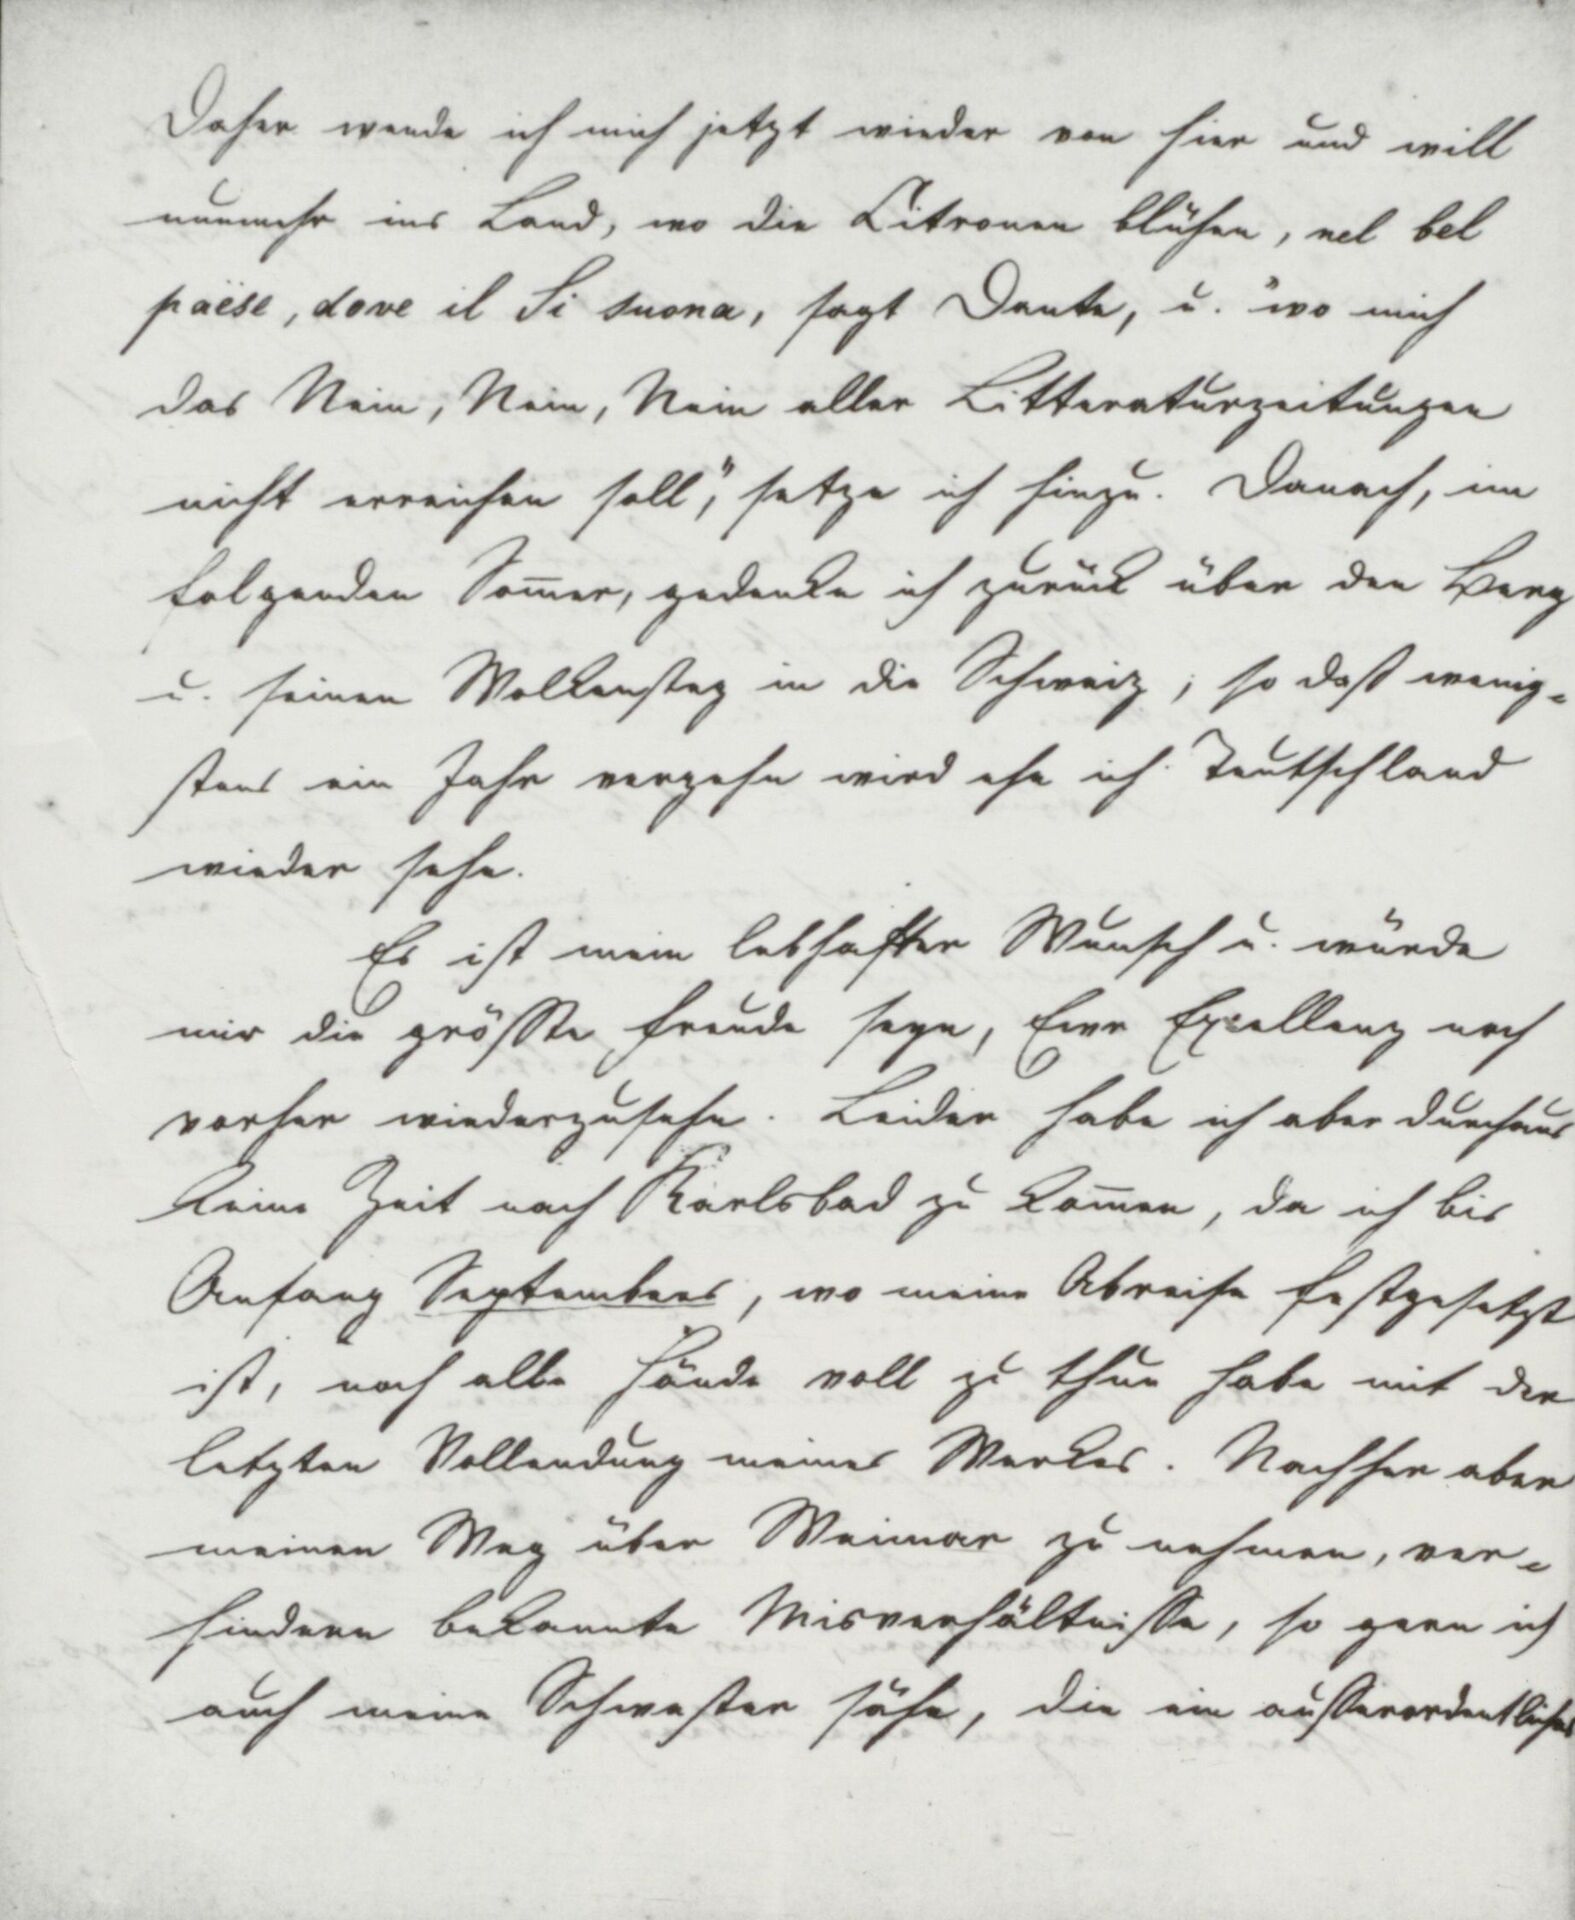 Daher wende ich mich jetzt wieder von hier und will
nunmehr ins Land, wo die Citronen blühen, nel bel
paëse, dove il Si suona, sagt Dante, u. "wo mich
das Nein, Nein, Nein aller Litteraturzeitungen
nicht erreichen soll", setze ich hinzu. Danach, im
folgenden Som̅er, gedenke ich zurück über den Berg
u. seinen Wolkensteg in die Schweiz; so daß wenig-
stens ein Jahr vergehn wird ehe ich Teutschland
wieder sehe.
Es ist mein lebhafter Wunsch u. würde
mir die größte Freude seyn, Ewr Excellenz noch
vorher wiederzusehn. Leider habe ich aber durchaus
keine Zeit nach Karlsbad zu kom̅en, da ich bis
Anfang Septembers, wo meine Abreise festgesetzt
ist, noch alle Hände voll zu thun habe mit der
letzten Vollendung meines Werkes. Nachher aber
meinen Weg über Weimar zu nehmen, ver-
hindern bekannte Misverhältnisse, so gern ich
auch meine Schwester sähe, die ein außerordentliches